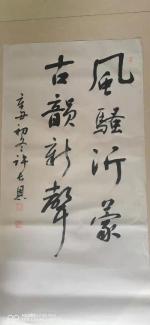 風騷沂蒙
古韻新聲
辛丑初冬許長恩